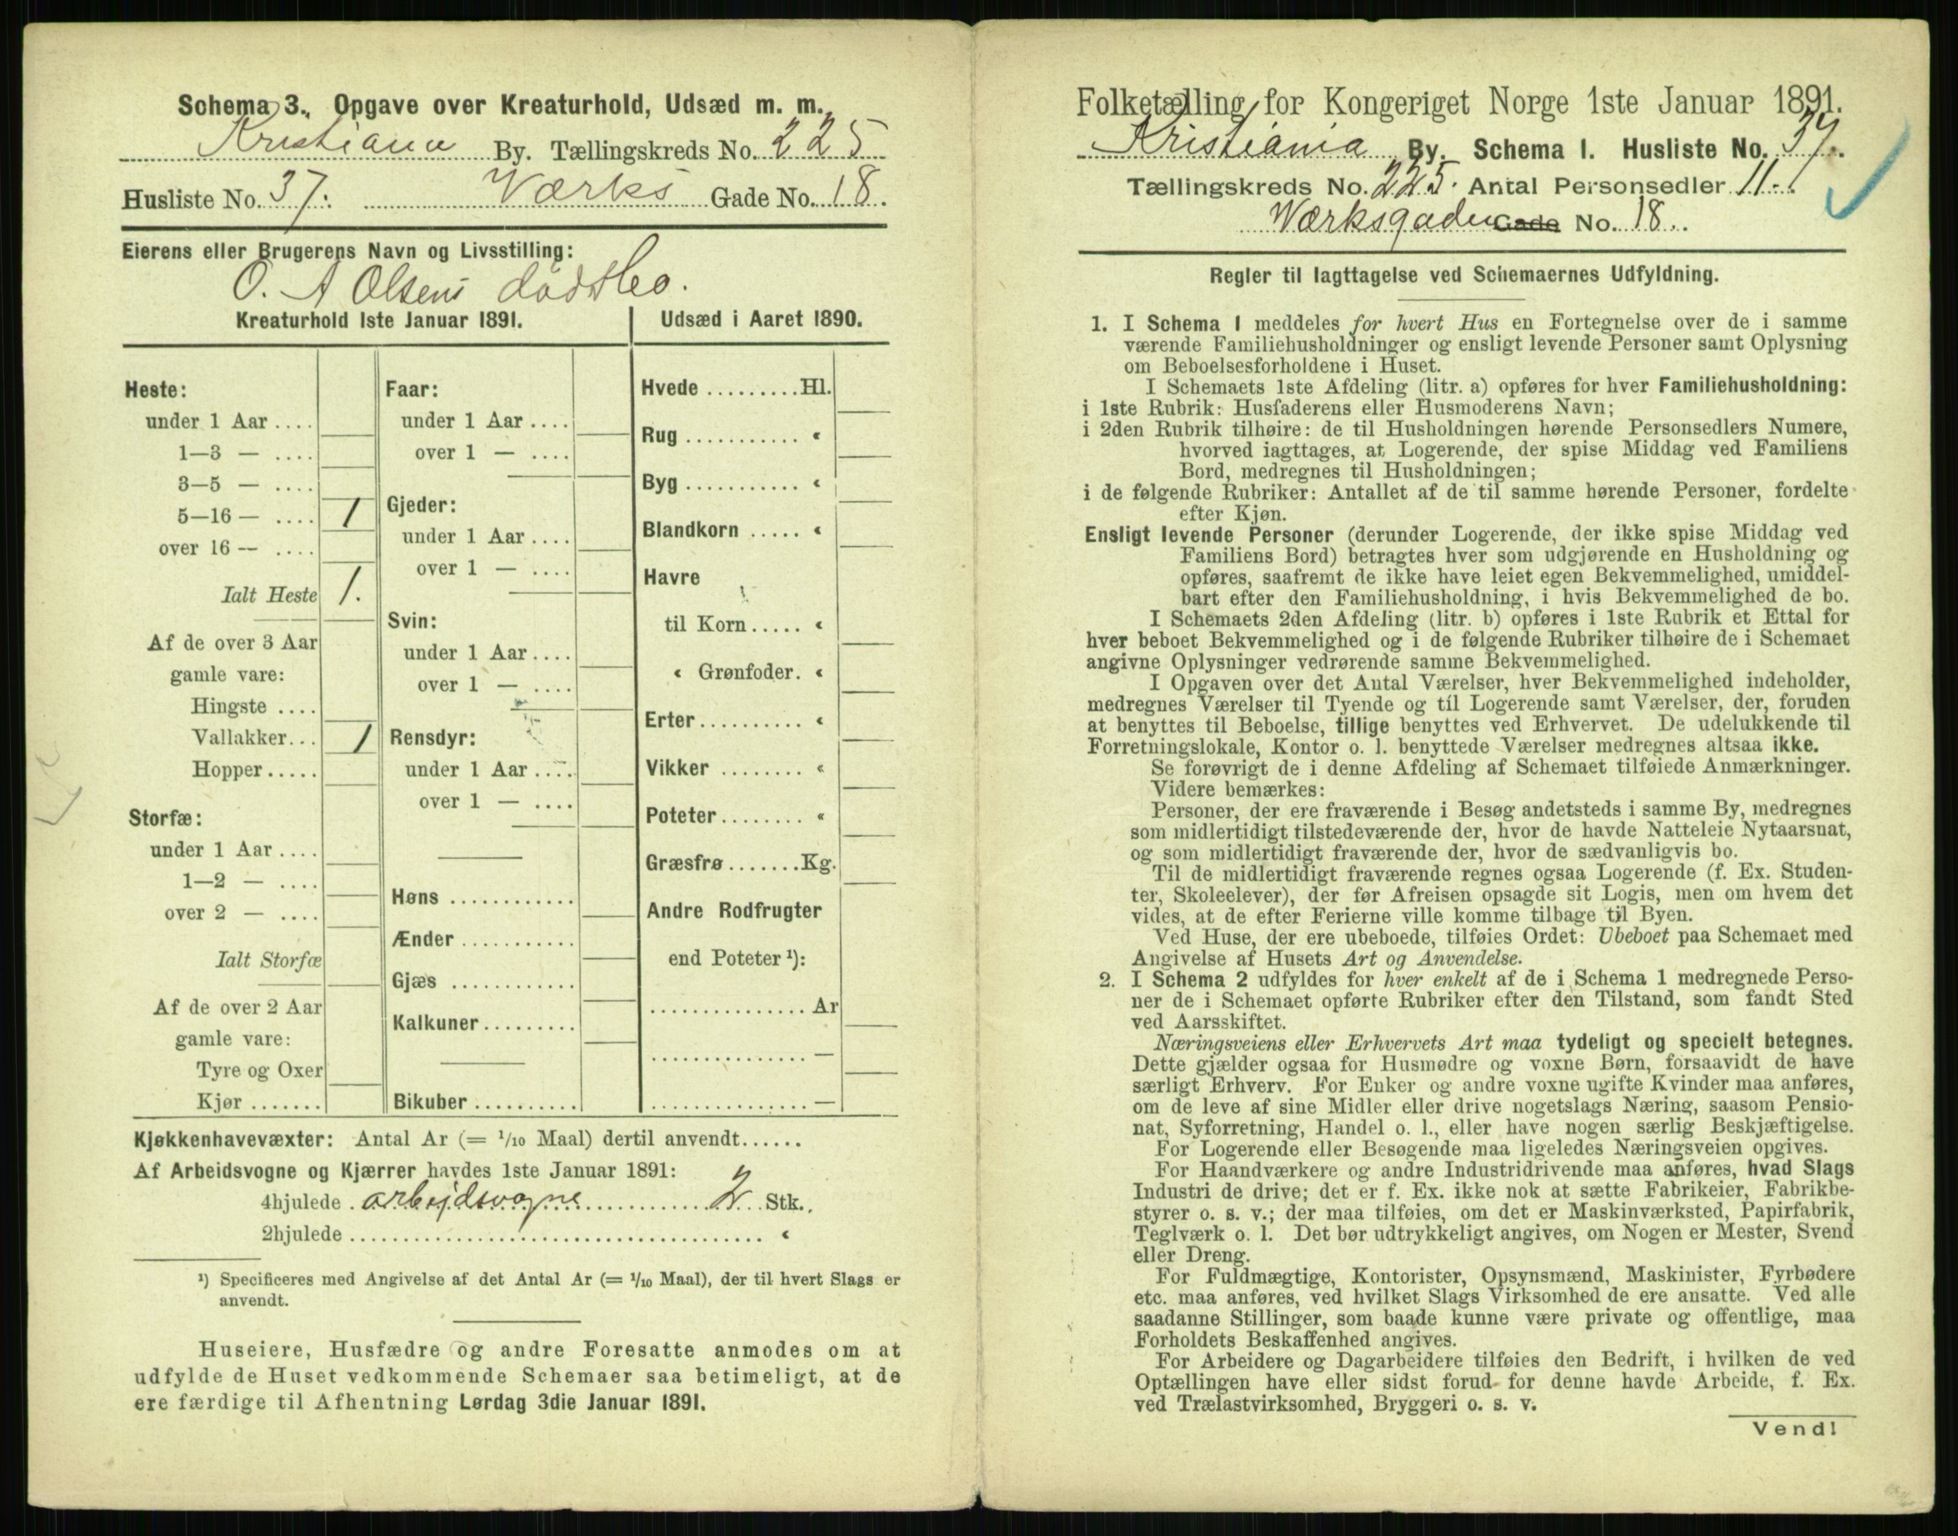 Schema 3. Opgave over Kreaturhold, Udsæd m. m.
Kristiania By. Tællingskreds No. 225
Husliste No. 37. Værks Gade No. 18.
Eierens eller Brugerens Navn og Livsstilling:
O. A Olsens dødsbo.
Kreaturhold 1ste Januar 1891.
Heste:
under 1 Aar ....
1—3 — ....
3—5 — ....
5—16 — .... 1
over 16 — ....
Ialt Heste 1.
Af de over 3 Aar
gamle vare:
Hingste ....
Vallakker... 1
Hopper.....
Storfæ:
under 1 Aar ....
1—2 — ....
over 2 — ....
Ialt Storfæ
Af de over 2 Aar
gamle vare:
Tyre og Oxer
Kjør .......
Faar:
under 1 Aar ....
over 1 — ....
Gjeder:
under 1 Aar ....
over 1 — ....
Svin:
under 1 Aar....
over 1 — ....
Rensdyr:
under 1 Aar ....
over 1 — ....
Høns ............
Ænder ...........
Gjæs ............
Kalkuner.........
Bikuber ..........
Udsæd i Aaret 1890.
Hvede .........Hl.
Rug ........... «
Byg ........... «
Blandkorn ..... «
Havre
til Korn..... «
« Grønfoder. «
Erter.......... «
Vikker ........ «
Poteter........ «
Græsfrø .......Kg.
Andre Rodfrugter
end Poteter ¹):
............... Ar
............... —
............... —
Kjøkkenhavevæxter: Antal Ar (= 1/10 Maal) dertil anvendt......
Af Arbeidsvogne og Kjærrer havdes 1ste Januar 1891:
4hjulede arbejdsvogne 2 Stk.
2hjulede ..................................... «
¹) Specificeres med Angivelse af det Antal Ar (= 1/10 Maal), der til hvert Slags er
anvendt.
Huseiere, Husfædre og andre Foresatte anmodes om at
udfylde de Huset vedkommende Schemaer saa betimeligt, at de
ere færdige til Afhentning Lørdag 3die Januar 1891.
Folketælling for Kongeriget Norge 1ste Januar 1891.
Kristiania By. Schema I. Husliste No. 37.
Tællingskreds No. 225. Antal Personsedler 11.
Værksgaden Gade No. 18.
Regler til Iagttagelse ved Schemaernes Udfyldning.
1. I Schema 1 meddeles for hvert Hus en Fortegnelse over de i samme
værende Familiehusholdninger og ensligt levende Personer samt Oplysning
om Beboelsesforholdene i Huset.
I Schemaets 1ste Afdeling (litr. a) opføres for hver Familiehusholdning:
i 1ste Rubrik: Husfaderens eller Husmoderens Navn;
i 2den Rubrik tilhøire: de til Husholdningen hørende Personsedlers Numere,
hvorved iagttages, at Logerende, der spise Middag ved Familiens
Bord, medregnes til Husholdningen;
i de følgende Rubriker: Antallet af de til samme hørende Personer, fordelte
efter Kjøn.
Ensligt levende Personer (derunder Logerende, der ikke spise Middag ved
Familiens Bord) betragtes hver som udgjørende en Husholdning og
opføres, saafremt de ikke have leiet egen Bekvemmelighed, umiddel-
bart efter den Familiehusholdning, i hvis Bekvemmelighed de bo.
I Schemaets 2den Afdeling (litr. b) opføres i 1ste Rubrik et Ettal for
hver beboet Bekvemmelighed og i de følgende Rubriker tilhøire de i Schemaet
angivne Oplysninger vedrørende samme Bekvemmelighed.
I Opgaven over det Antal Værelser, hver Bekvemmelighed indeholder,
medregnes Værelser til Tyende og til Logerende samt Værelser, der, foruden
at benyttes til Beboelse, tillige benyttes ved Erhvervet. De udelukkende til
Forretningslokale, Kontor o. l. benyttede Værelser medregnes altsaa ikke.
Se forøvrigt de i denne Afdeling af Schemaet tilføiede Anmærkninger.
Videre bemærkes:
Personer, der ere fraværende i Besøg andetsteds i samme By, medregnes
som midlertidigt tilstedeværende der, hvor de havde Natteleie Nytaarsnat,
og som midlertidigt fraværende der, hvor de sædvanligvis bo.
Til de midlertidigt fraværende regnes ogsaa Logerende (f. Ex. Studen-
ter, Skoleelever), der før Afreisen opsagde sit Logis, men om hvem det
vides, at de efter Ferierne ville komme tilbage til Byen.
Ved Huse, der ere ubeboede, tilføies Ordet: Ubeboet paa Schemaet med
Angivelse af Husets Art og Anvendelse.
2. I Schema 2 udfyldes for hver enkelt af de i Schema 1 medregnede Perso-
ner de i Schemaet opførte Rubriker efter den Tilstand, som fandt Sted
ved Aarsskiftet.
Næringsveiens eller Erhvervets Art maa tydeligt og specielt betegnes.
Dette gjælder ogsaa for Husmødre og voxne Børn, forsaavidt de have
særligt Erhverv. For Enker og andre voxne ugifte Kvinder maa anføres,
om de leve af sine Midler eller drive nogetslags Næring, saasom Pensio-
nat, Syforretning, Handel o. l., eller have nogen særlig Beskjæftigelse.
For Logerende eller Besøgende maa ligeledes Næringsveien opgives.
For Haandværkere og andre Industridrivende maa anføres, hvad Slags
Industri de drive; det er f. Ex. ikke nok at sætte Fabrikeier, Fabrikbe-
styrer o. s. v.; der maa tilføies, om det er Maskinværksted, Papirfabrik,
Teglværk o. l. Det bør udtrykkeligt angives, om Nogen er Mester, Svend
eller Dreng.
For Fuldmægtige, Kontorister, Opsynsmænd, Maskinister, Fyrbødere
etc. maa anføres, ved hvilket Slags Virksomhed de ere ansatte. Ved alle
saadanne Stillinger, som baade kunne være private og offentlige, maa
Forholdets Beskaffenhed angives.
For Arbeidere og Dagarbeidere tilføies den Bedrift, i hvilken de ved
Optællingen have eller sidst forud for denne havde Arbeide, f. Ex.
ved Trælastvirksomhed, Bryggeri o. s. v.
Vend!